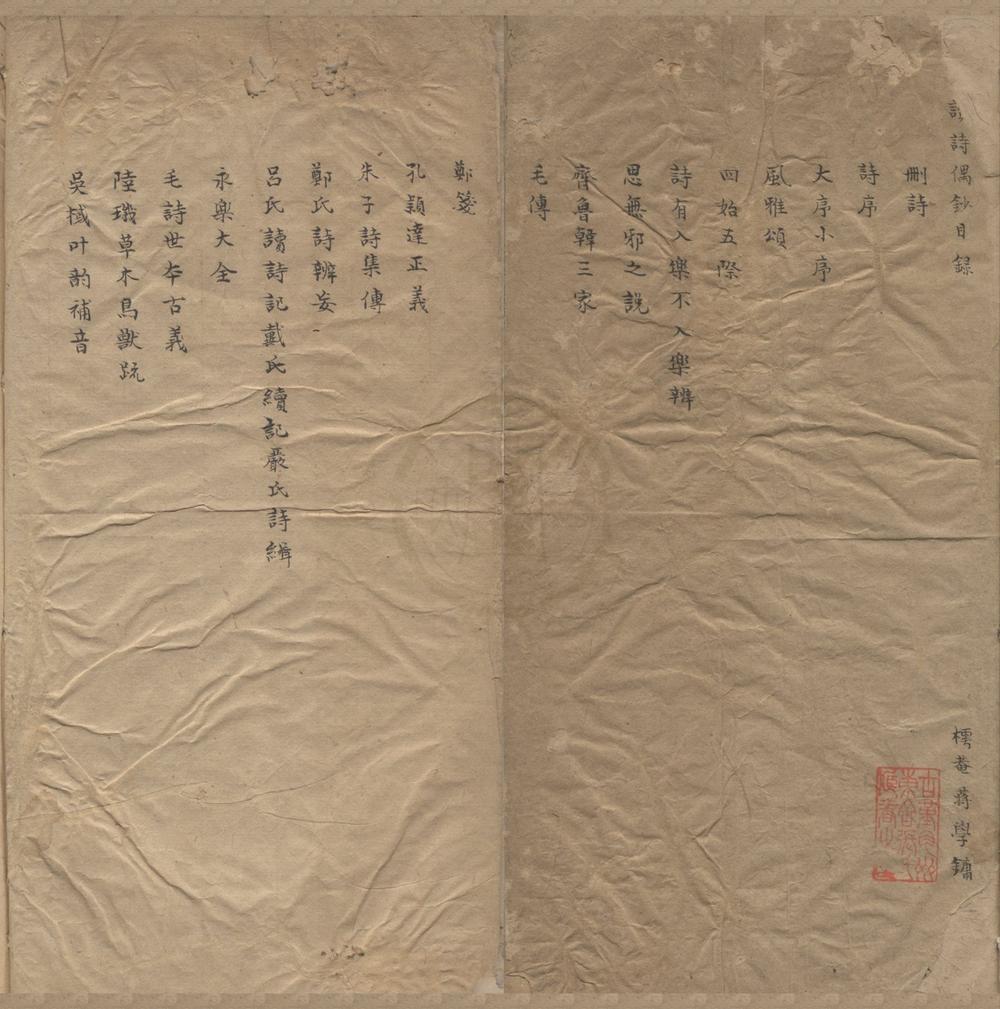 詩偶鈔目錄
樗菴蔣學鏞
刪詩
詩序
大序小序
風雅頌
四始五際
詩有入樂不入樂辨
思無邪之說
齊魯韓三家
毛傳
鄭箋
孔穎達正義
朱子詩集傳
鄭氏詩辨妄
呂氏讀詩記戴氏續記嚴氏詩緝
永樂大全
毛詩世本古義
陸璣草木鳥獸疏
吳棫叶韵補音